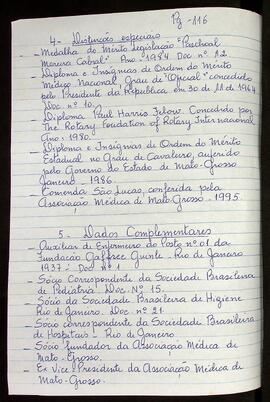 Pg - 116
4 - Distinções especiais
- Medalha do Mérito Legislação "Paschoal
Moreira Cabral" - Ano - 1984 Doc. nº 12
- Diploma e Insígnias de Ordem do Mérito
Médico Nacional, Grau de "Oficial" concedido
pelo Presidente da República em 30 de 11 de 1964
Doc. nº 10.
- Diploma Paul Harris Fellow. Concedido por
The Rotary Foudation of Rotary Internacional
Ano: 1980.
- Diploma e Insígnias de Ordem do Mérito
Estadual no Grau de Cavaleiro, auferido
pelo Governo do Estado de Mato-Grosso
Janeiro - 1986.
- Comenda São Lucas, conferida pela
Associação Médica de Mato-Grosso - 1995.
5 - Dados Complementares
- Auxiliar de Enfermeiro do Posto nº 01 da
Fundação Gaffreé Guinle - Rio de Janeiro
1937 - Doc nº 1
- Sócio Correspondente da Sociedade Brasileira
de Pediatria. Doc. Nº 15.
- Sócio da Sociedade Brasileira de Higiene
Rio de Janeiro. Doc. nº 21.
- Sócio correspondente da Sociedade Brasileira
de Hospitais - Rio de Janeiro.
- Sócio fundador da Associação Médica de
Mato-Grosso.
- Ex Vice-Presidente da Associação Médica de
Mato-Grosso.